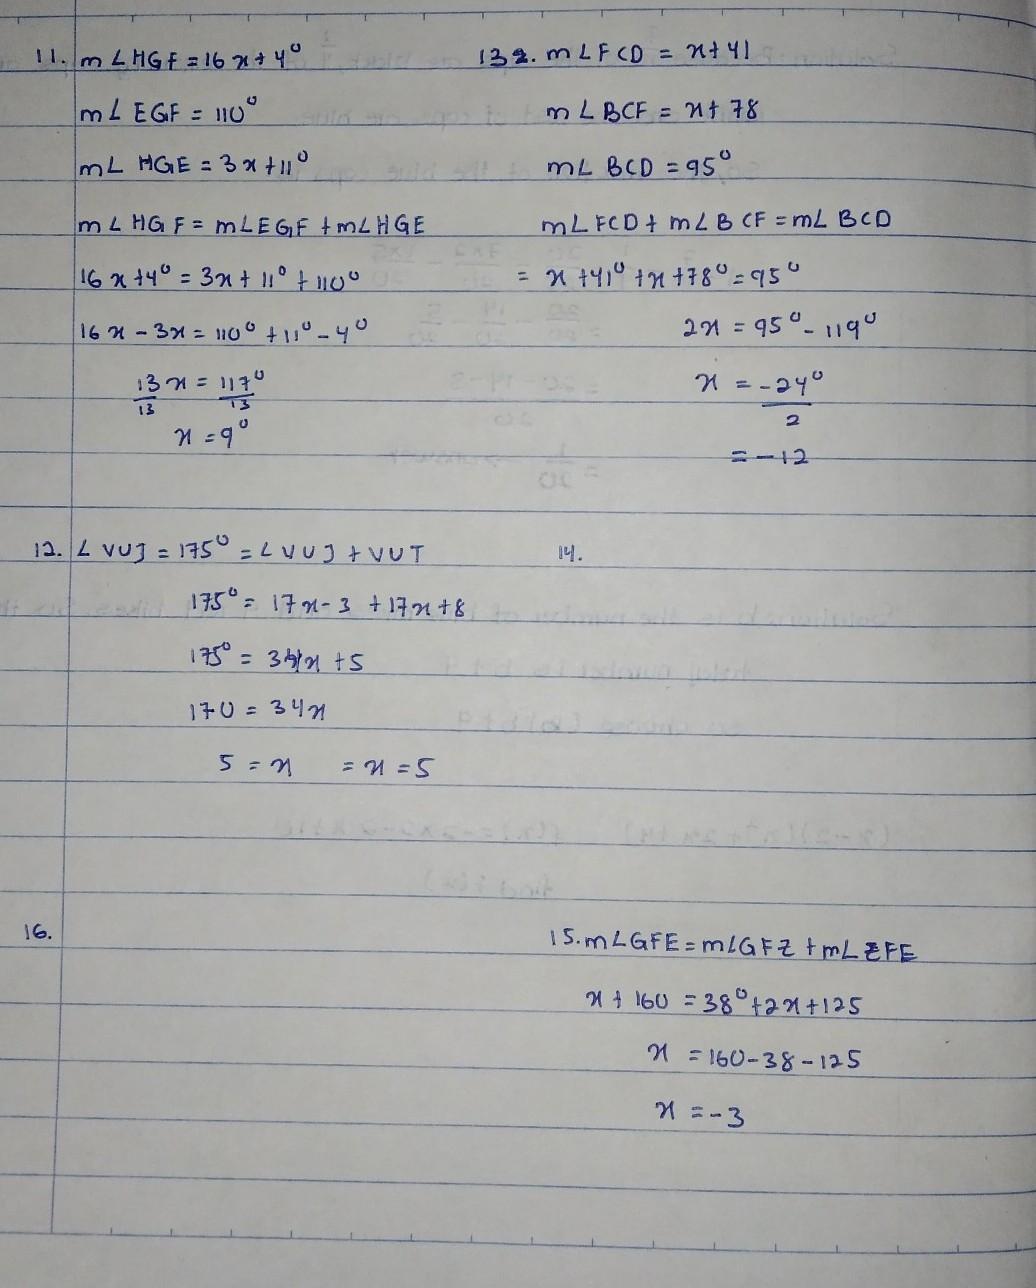 11. m∠HGF = 16x + 4°
m∠EGF = 110°
m∠HGE = 3x + 11°
m∠HGF = m∠EGF + m∠HGE
16x + 4° = 3x + 11° + 110°
16x - 3x = 110° + 11° - 4°
13x = 117°
13 13
x = 9°
132. m∠FCD = x + 41
m∠BCF = x + 78
m∠BCD = 95°
m∠FCD + m∠BCF = m∠BCD
= x + 41° + x + 78° = 95°
2x = 95° - 119°
x = -24°
2
= -12
12. ∠VUJ = 175° = ∠VUJ + VUT
175° = 17x - 3 + 17x + 8
175° = 34x + 5
170 = 34x
5 = x = x = 5
14.
16.
15. m∠GFE = m∠GFZ + m∠ZFE
x + 160 = 38° + 2x + 125
x = 160 - 38 - 125
x = -3